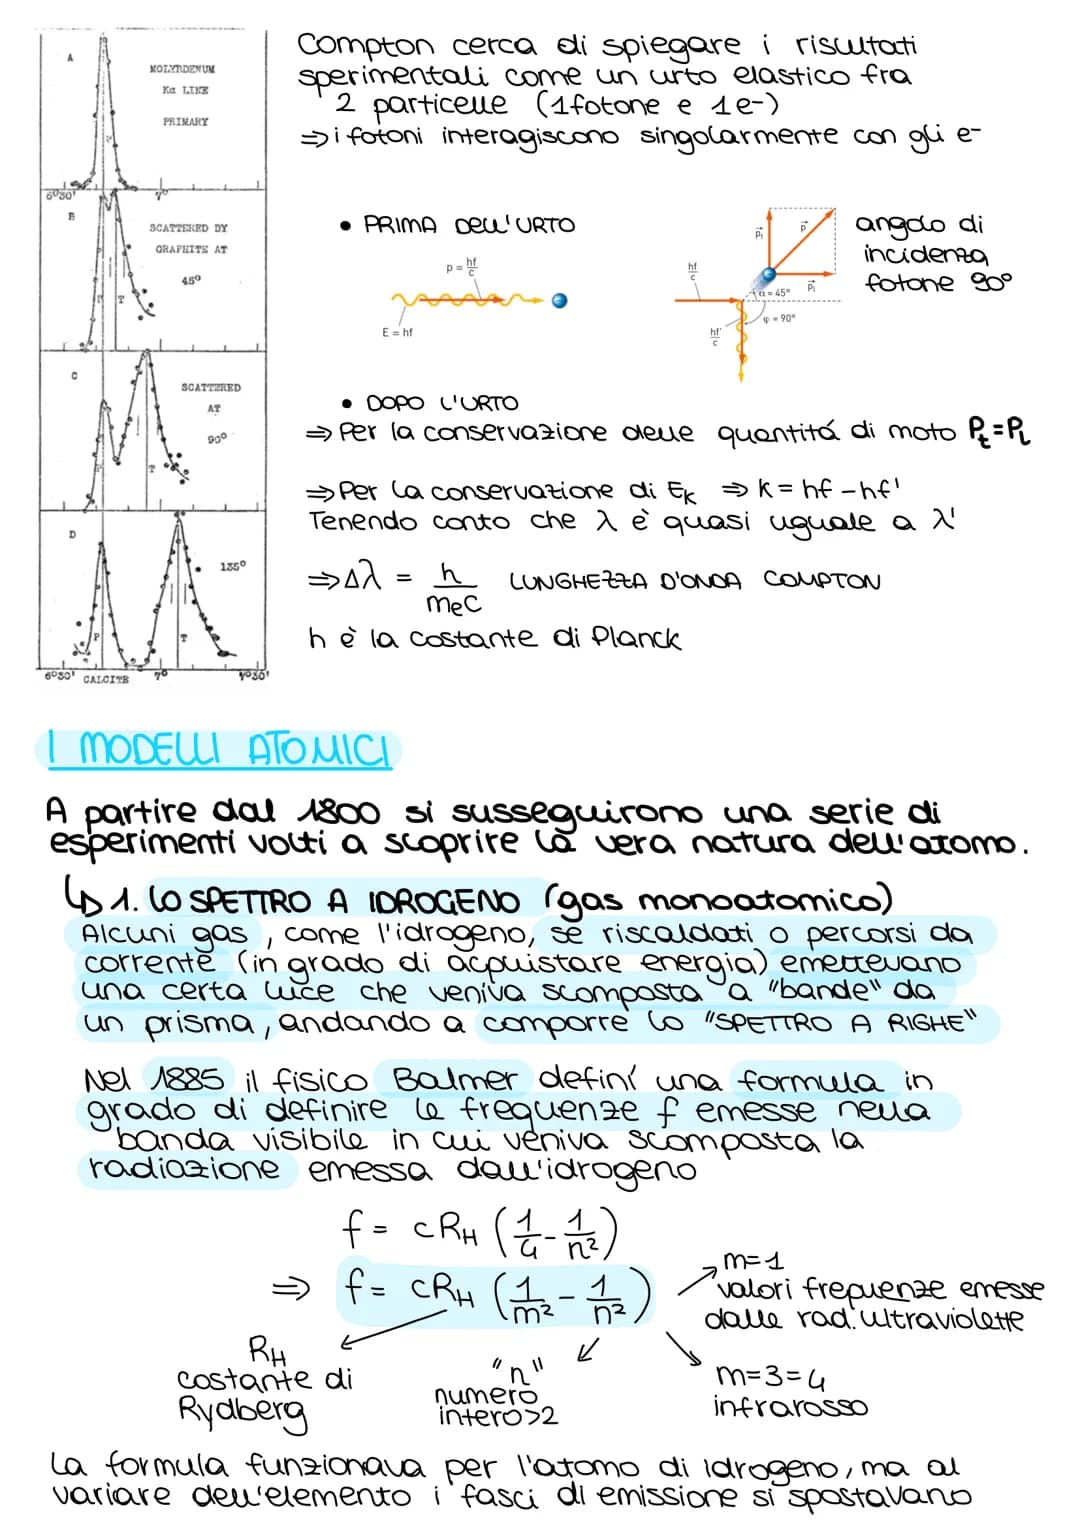 A
MOLYBDENUM
Kα LINE
PRIMARY
P
6°30'
7°
B
SCATTERED BY
GRAPHITE AT
45°
P
T
C
SCATTERED
AT
90°
P
T
D
135°
P
T
6°30'
CALCITE
7°
7°30'
Compton cerca di spiegare i risultati
sperimentali come un urto elastico fra
2 particelle (1fotone e 1e-)
⇒i fotoni interagiscono singolarmente con gli e-
• PRIMA DELL'URTO
p = hf/c
E = hf
hf/c
hf'/c
α = 45°
φ = 90°
angolo di
incidenza
fotone 90°
• DOPO L'URTO
⇒ Per la conservazione delle quantitá di moto Pt=Pl
⇒Per la conservazione di EK ⇒ K= hf -hf'
Tenendo conto che λ è quasi uguale a λ'
⇒Δλ = h/meC LUNGHEZZA D'ONDA COMPTON
h è la costante di Planck
I MODELLI ATOMICI
A partire dal 1800 si susseguirono una serie di
esperimenti volti a scoprire la vera natura dell'atomo.
↳ 1. LO SPETTRO A IDROGENO (gas monoatomico)
Alcuni gas, come l'idrogeno, se riscaldati o percorsi da
corrente (in grado di acquistare energia) emettevano
una certa luce che veniva scomposta a "bande" da
un prisma, andando a comporre lo "SPETTRO A RIGHE"
Nel 1885 il fisico Balmer definí una formula in
grado di definire le frequenze f emesse nella
banda visibile in cui veniva scomposta la
radiazione emessa dall'idrogeno
f = cRH (1/4 - 1/n²)
⇒ f = cRH (1/m² - 1/n²)
m=1
valori frequenze emesse
dalle rad. ultraviolette
RH
costante di
Rydberg
"n"
numero
intero>2
m=3=4
infrarosso
La formula funzionava per l'atomo di idrogeno, ma al
variare dell'elemento i fasci di emissione si spostavano